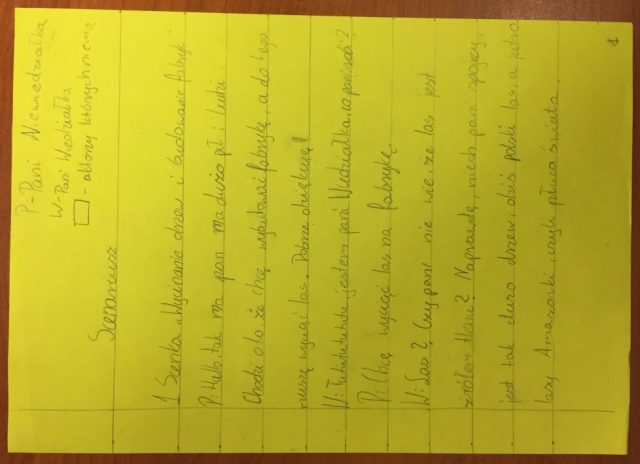 P-Pani Niewiedziałka
W-Pani Wiedziałka
- aktorzy których nie ma
Scenariusz
1 Scenka „Wycinanie drzew i budowanie fabryk"
P: Halo, tak ma pan ma dużo pił i ludzi.
Chodzi o to że chcę wybudować fabrykę, a do tego
muszę wyciąć las. Dobrze dziękuję!
W: Tutututututu, jestem pani Wiedziałka, co pani robi?
P: Chcę wyciąć las na fabrykę.
W: Las? Czy pani nie wie, że las jest
źródłem tlenu? Naprawdę, niech pani spojrzy,
jest tak dużo drzew, dziś polski las, a jutro
lasy Amazonki, czyli płuca świata.
1